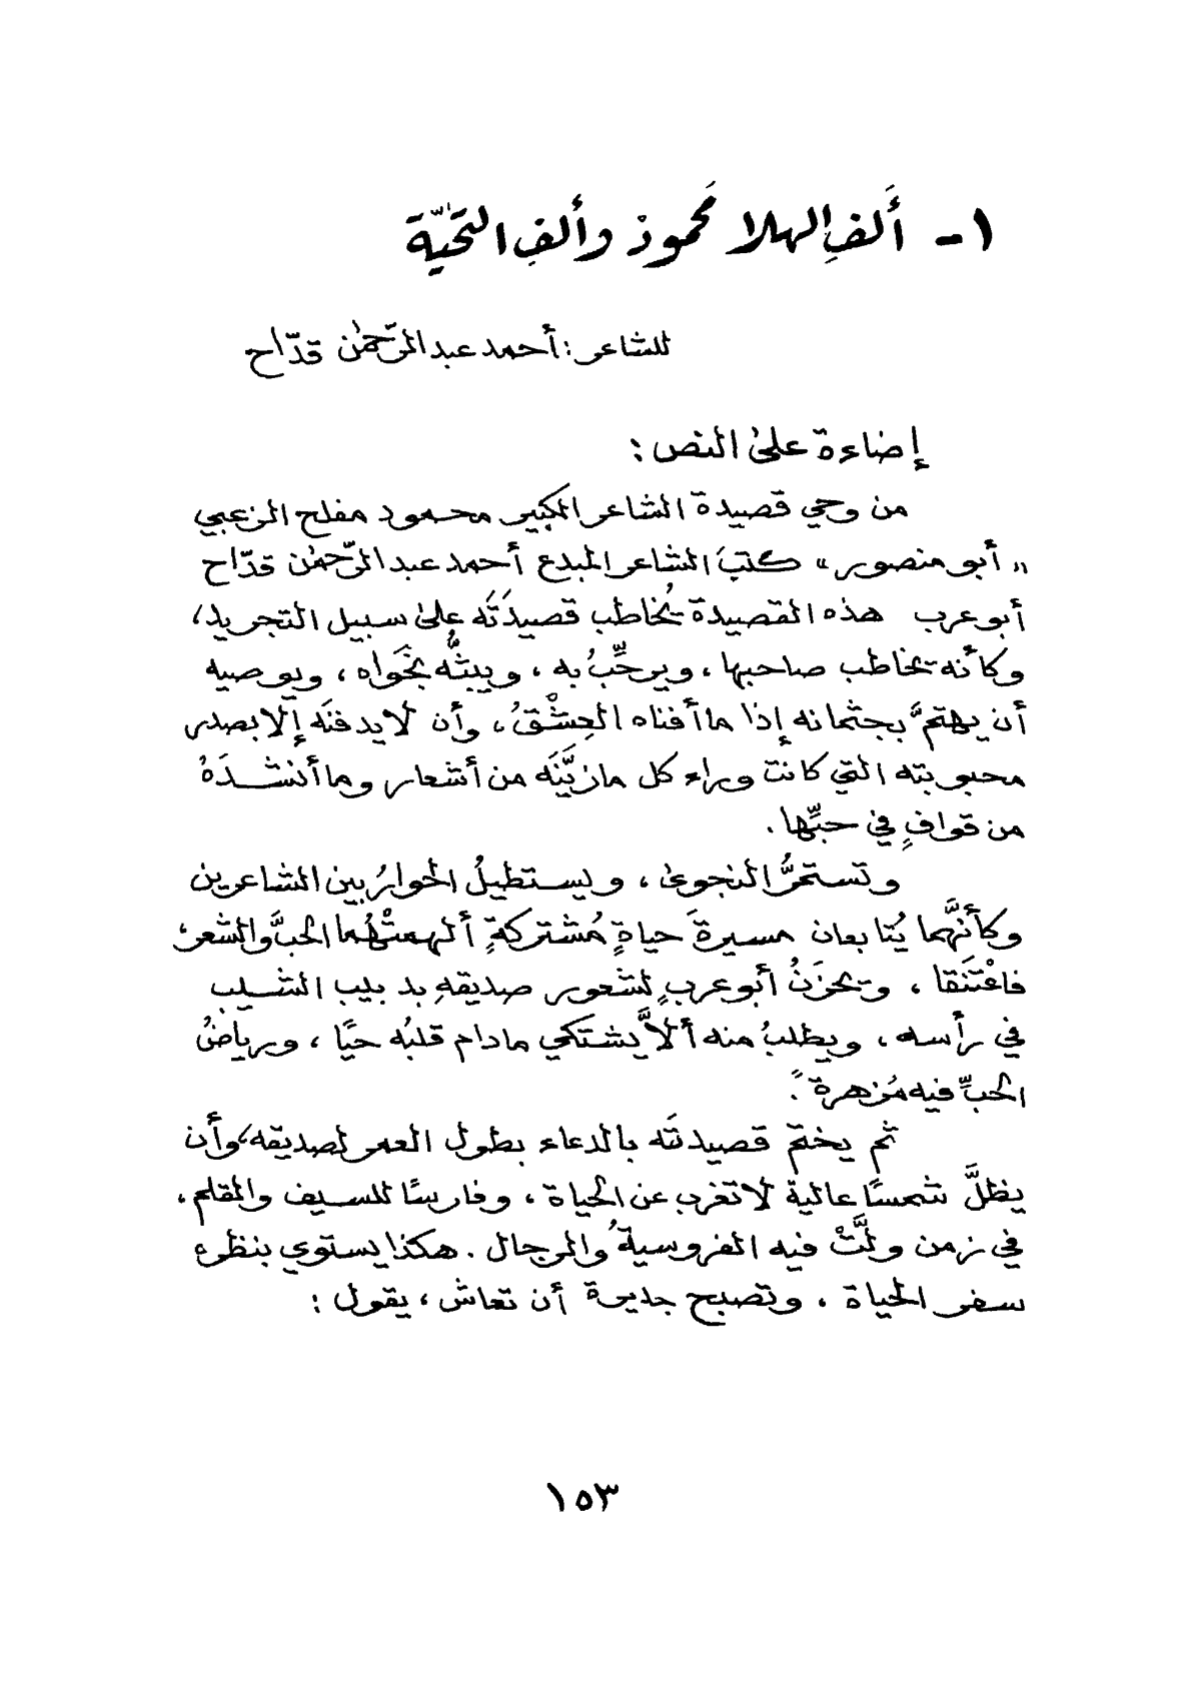 ١- أَلفِ الهلا مَحمودْ وألفِ التحّيّة
للشاعر: أحمد عبد الرّحمٰن قدّاح
إضاءة علىٰ النص:
من وحي قصيدة الشاعر الكبير محمود مفلح الزعبي
«أبو منصور» كتبَ الشاعر المبدع أحمد عبد الرّحمٰن قدّاح
أبو عرب هذه القصيدة يُخاطب قصيدَتَه علىٰ سبيل التجريد،
وكأنه يخاطب صاحبها، ويرحِّبُ به، ويبثُّه نجَواه، ويوصيه
أن يهتمَّ بجثمانه إذا ما أفناه العِشْقُ، وأن لا يدفنَه إلا بصدر
محبوبته التي كانت وراء كل ما زيَّنَه من أشعار وما أنشدَهُ
من قوافٍ في حبِّها.
وتستمرُّ النجوىٰ، ويستطيلُ الحوارُ بين الشاعرين
وكأنَّهما يُتابعان مسيرةَ حياةٍ مُشتركةٍ ألهمتْهُما الحبَّ والشعر،
فاعْتنَقا، ويحزَنُ أبو عربٍ لشعور صديقهِ بدبيب الشيب
في رأسه، ويطلبُ منه ألاَّ يشتكي ما دام قلبُه حيًا، ورياضُ
الحبِّ فيه مُزهرةً.
ثم يختم قصيدتَه بالدعاء بطول العمر لصديقه، وأن
يظلَّ شمسًا عالية لا تغرب عن الحياة، وفارسًا للسيف والقلم،
في زمن ولَّتْ فيه الفروسيةُ والرجال. هكذا يستوي بنظره
سفر الحياة، وتصبح جديرة أن تعاش، يقول:
١٥٣